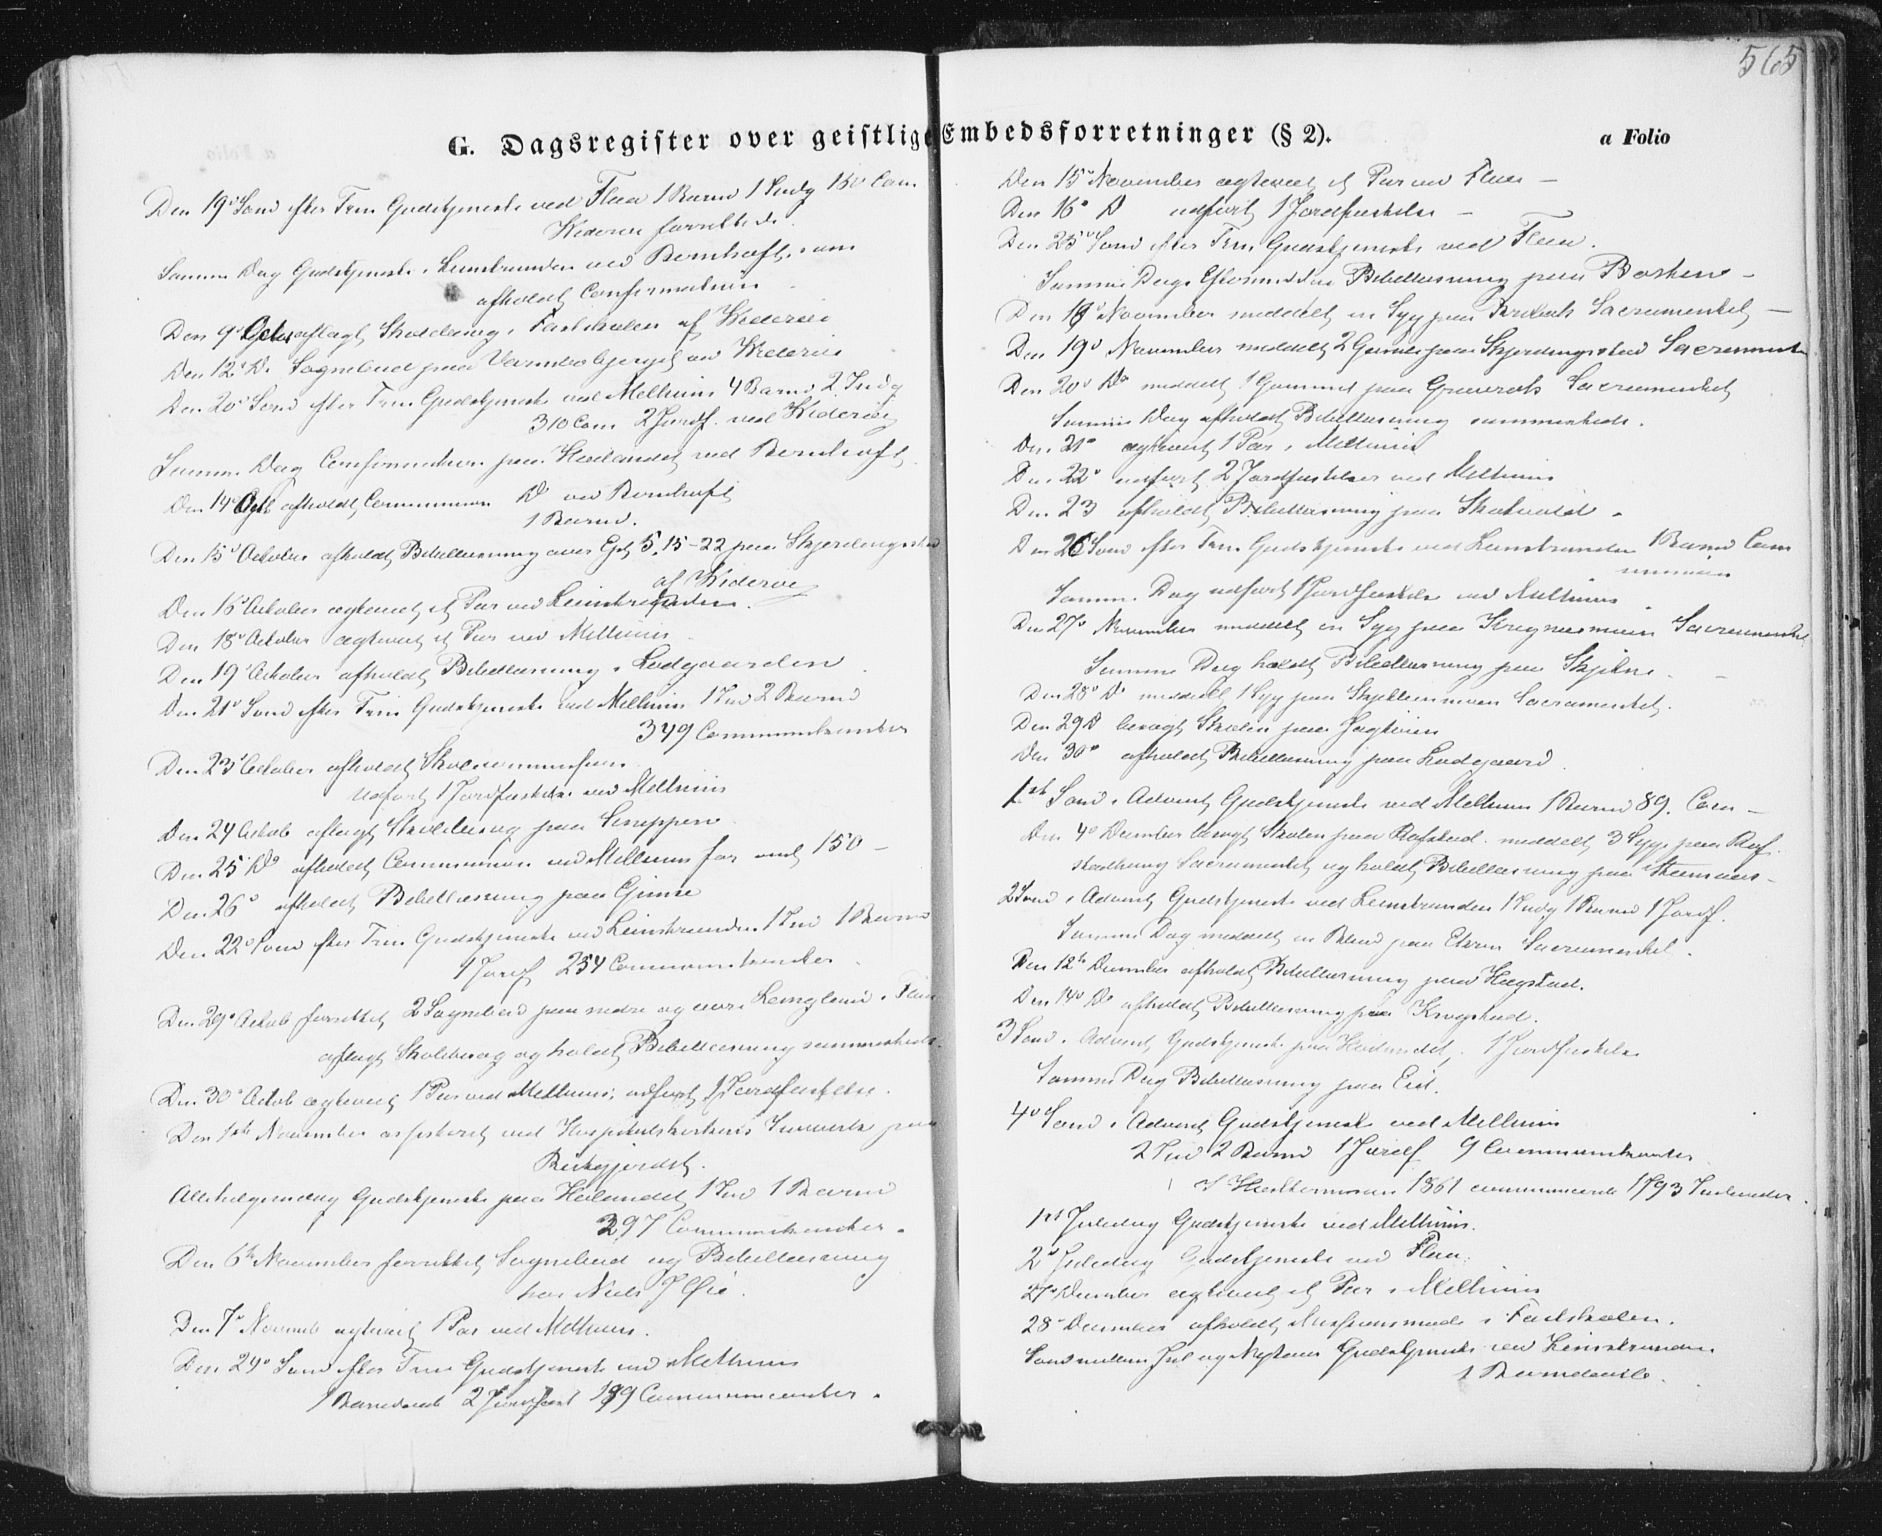 565
G. Dagsregister over geistlige Embedsforretninger (§ 2).
a Folio
Den 19° Sønd efter Trin Gudstjeneste ved Flaa 1 Barn 1 Indg 150 Com
Widerøe forrettede.
Samme Dag Gudstjeneste i Leinstranden ved Bernhoft, som
afholdt Confirmation
Den 9° Octbr aflagt Skolebesøg i Fastskolen af Widerøe
Den 12° D° Sognebud paa Varmbobjerget ved Widerøe
Den 20° Sønd efter Trin Gudstjeneste ved Melhuus 4 Barn 2 Indg
310 Com 2 Jordf. ved Widerøe
Samme Dag Confirmation paa Høilandet ved Bernhoft
Den 14° Octb afholdt Communion D° ved Bernhoft
1 Barn.
Den 15° October afholdt Bibellæsning over Eph 5, 15-22 paa Skjerdingstad
af Widerøe
Den 16° October ægteviet et Par ved Leinstranden.
Den 18° October ægteviet et Par ved Melhuus
Den 19° October afholdt Bibellæsning i Lødgaarden
Den 21° Sønd efter Trin Gudstjeneste ved Melhuus 1 Ind 2 Barn
349 Communicanter
Den 23° October afholdt Skolecommission
Udført 1 Jordfæstelse ved Melhuus
Den 24 Octob aflagt Skolebesøg paa
Den 25 D° afholdt Communion ved Melhuus for omt 150 -
Den 26° afholdt Bibellæsning paa Gimse
Den 22° Sønd efter Trin Gudstjeneste ved Leinstranden 1 Ind 1 Barn
1 Jordf 254 Communicanter
Den 29° Octob forrettet 2 Sognebud paa nedre og øvre i Flaa
aflagt Skolebesøg og holdt Bibellæsning sammesteds.
Den 30° Octob ægteviet 1 Par ved Melhuus, udført 1 Jordfæstelse.
Den 1ste November ved Hospitalskirkens paa
Allehelgensdag Gudstjeneste paa Høilandet 1 Ind 1 Barn
297 Communicanter.
Den 6te November forrettet Sognebud og Bibellæsning
hos Niels J Øie.
Den 7° Novemb ægteviet 1 Par ved Melhuus.
Den 24° Sønd efter Trin Gudstjeneste ved Melhuus
1 Barnedaab 2 Jordfæst 189 Communicanter.
Den 15° November ægteviet et Par ved Flaa -
Den 16° D° udført 1 Jordfæstelse -
Den 25° Sønd efter Trin Gudstjeneste ved Flaa.
Samme Dags Eftermiddag Bibellæsning paa
Den 18° November meddelt en Syg paa Sacramentet -
Den 19° November meddelt 2 Gamle paa Skjerdingstad Sacramentet
Den 20° D° meddelt 1 Gammel paa Sacramentet
Samme Dag afholdt Bibellæsning sammesteds.
Den 21° ægteviet 1 Par i Melhuus
Den 22° udført 2 Jordfæstelser ved Melhuus
Den 23 afholdt Bibellæsning paa
Den 26 Sønd efter Trin Gudstjeneste ved Leinstranden 1 Barn Com
munion
Samme Dag udført 1 Jordfæstelse ved Melhuus
Den 27° November meddelt en Syg paa Sacramentet
Samme Dag holdt Bibellæsning paa
Den 28° D° meddelt 1 Syg paa Sacramentet.
Den 29 D besøgt Skolen paa
Den 30° afholdt Bibellæsning paa Lødgaard
1ste Sønd i Advent Gudstjeneste ved Melhuus 1 Barn 89. Com -
Den 4° December besøgt Skolen paa meddelt 3 Syge paa
Sacramentet og holdt Bibellæsning paa
2 Sønd i Advent Gudstjeneste ved Leinstranden 1 Indg 1 Barn 1 Jordf.
Samme Dag meddelt en Blind paa Sacramentet.
Den 12te December afholdt Bibellæsning paa Hagstad.
Den 14° D° afholdt Bibellæsning paa Krogstad.
3 Sønd i Advent Gudstjeneste paa Høilandet. 1 Jordfæstelse
Samme Dag Bibellæsning paa Eid.
4° Sønd i Advent Gudstjeneste ved Melhuus
2 Ind 2 Barn 1 Jordf 9 Communicanter
1861 communicerte 1793
1ste Juledag Gudstjeneste ved Melhuus.
2° Juledag Gudstjeneste ved Flaa.
27° December ægteviet et Par i Melhuus
28° December afholdt Missionsmøde i Fastskolen.
Sønd mellem Jul og Nytaar Gudstjeneste ved Leinstranden
1 Barnedaab.